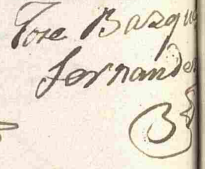 Jose Bazque
Fernande